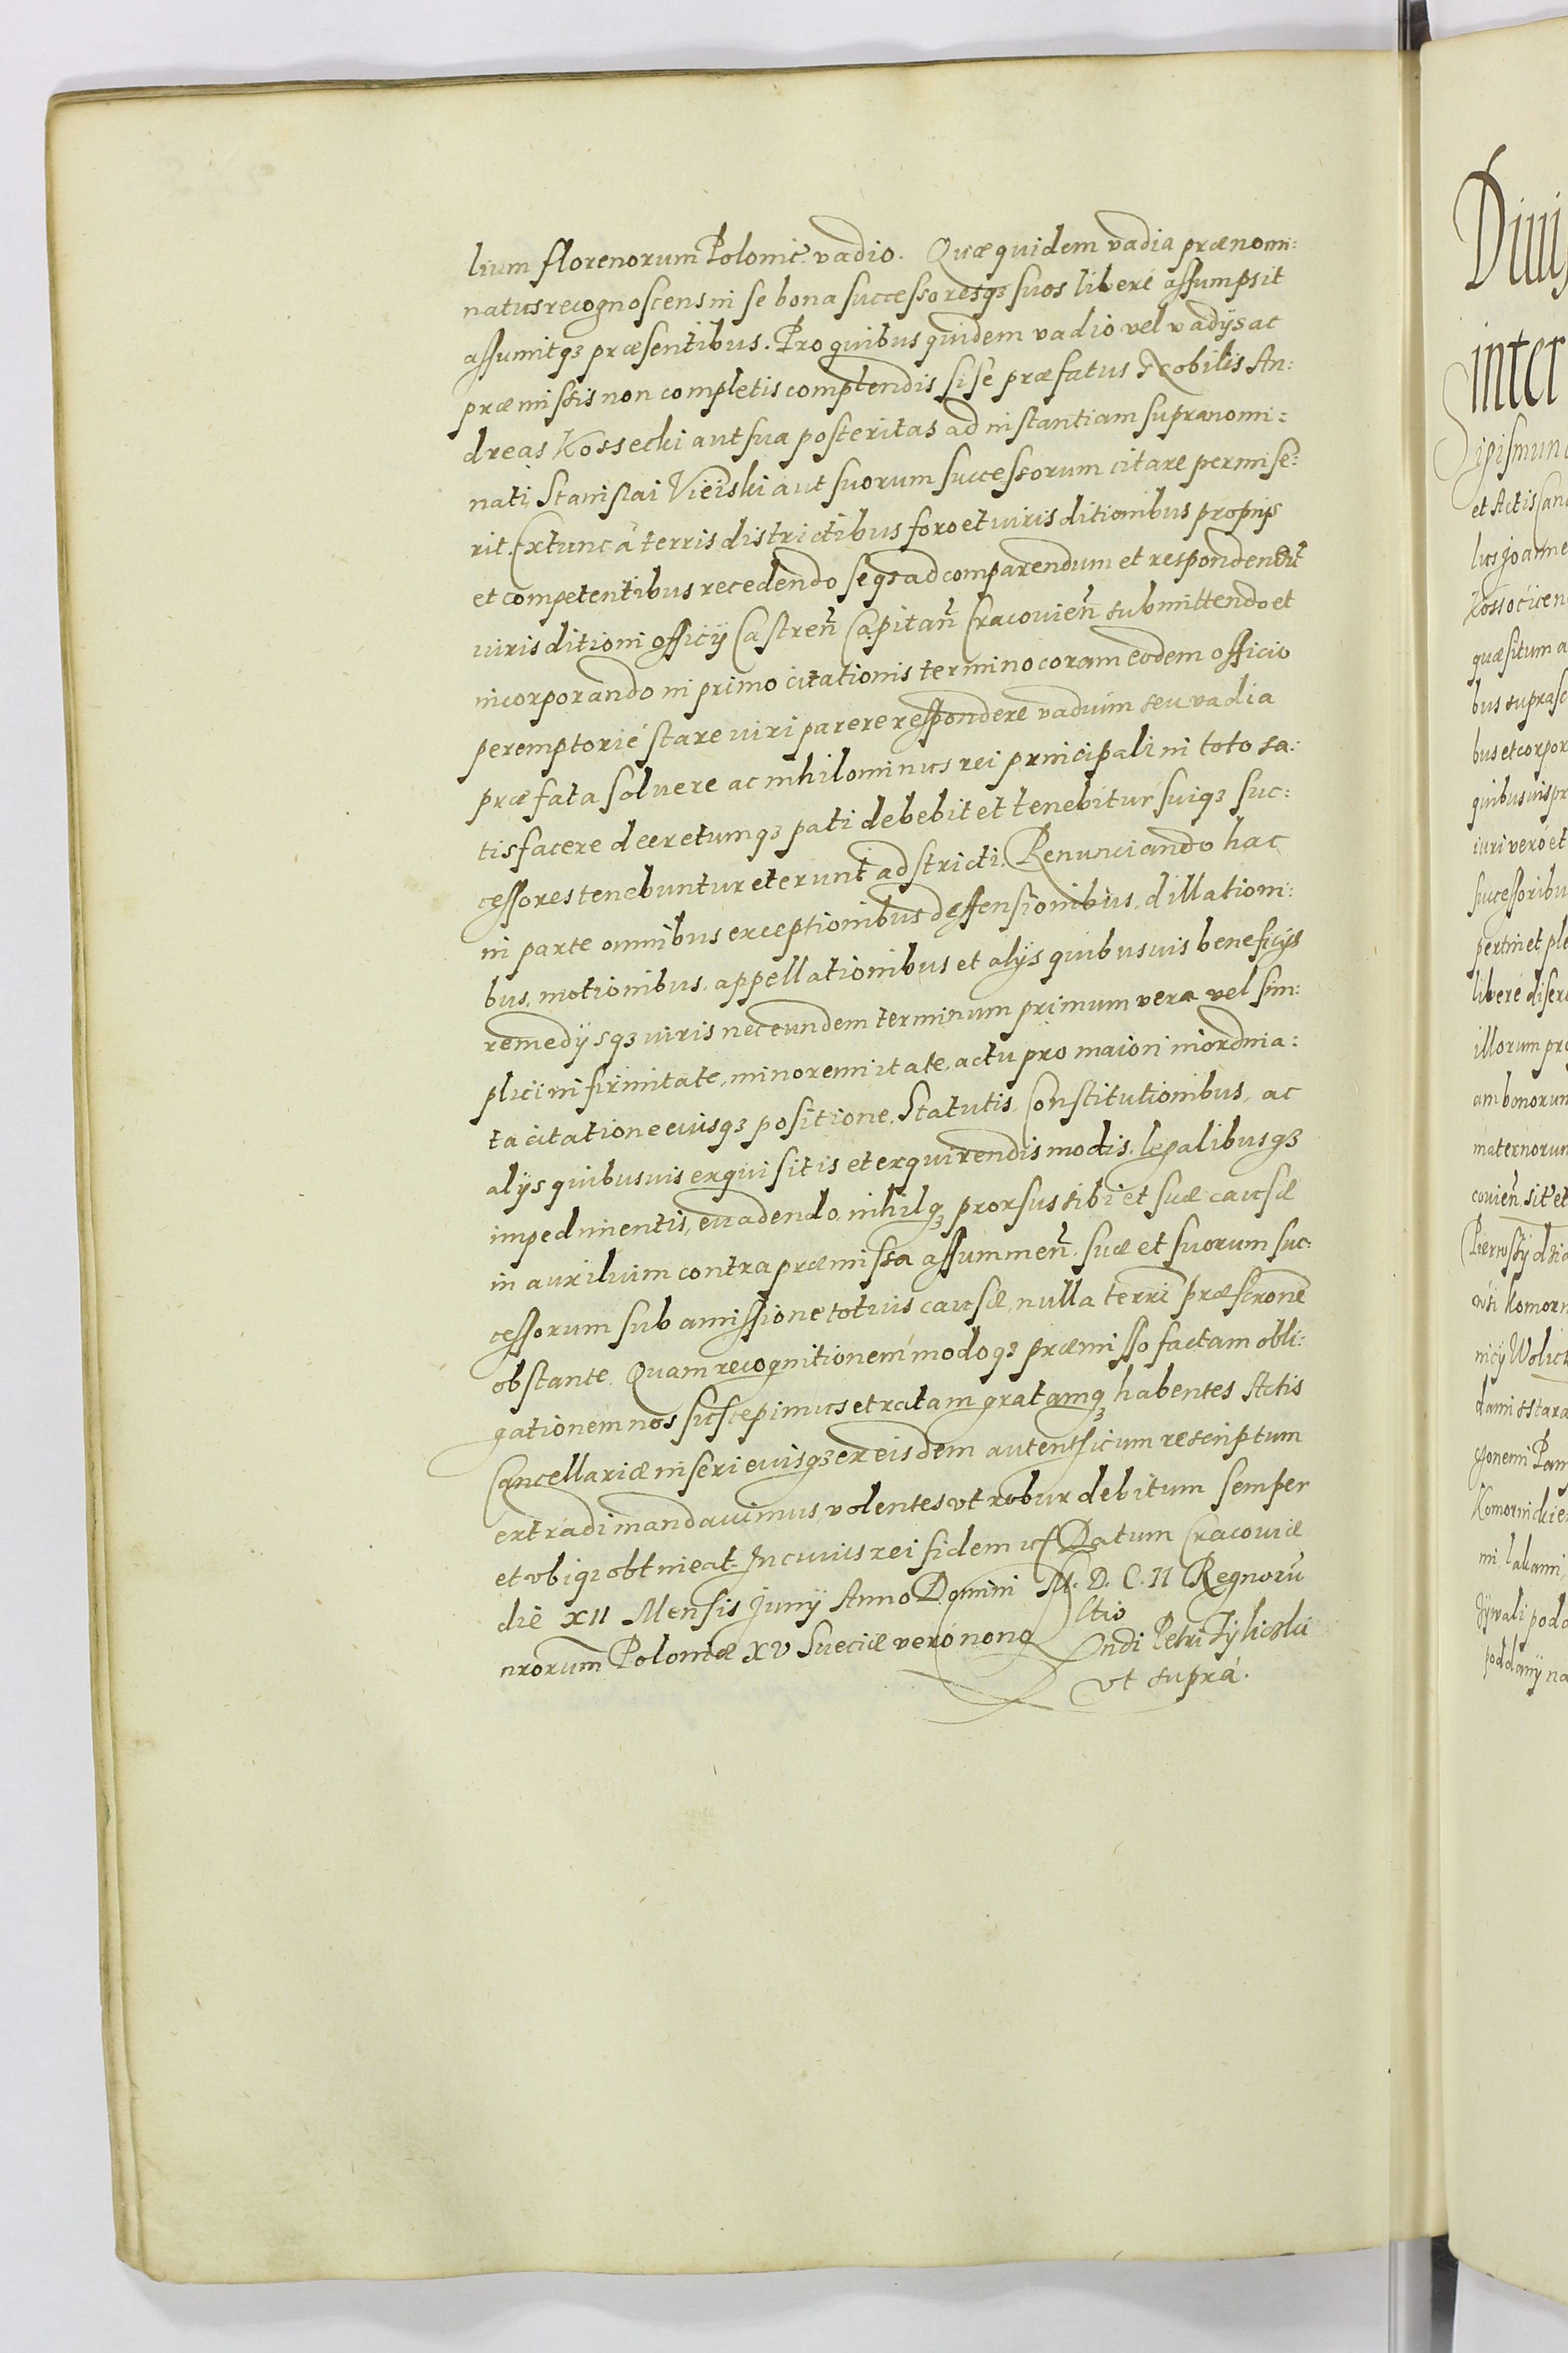 lium florenorum Polonic̃ vadio. Quæ quidem vadia prænomi:
natus recognoscens in se bona successoresqꝫ suos liberè assumpsit
assumitqꝫ præsentibus. Pro quibus quidem vadio vel vadijs ac
præmissis non completis complendis si se præfatus Nobilis An:
dreas Kossecki aut sua posteritas ad instantiam supranomi:
nati Stanislai Vieiski aut suorum successorum citare permise:
rit. Extunc à terris districtibus foro et iurisditionibus proprijs
et competentibus recedendo seqꝫ ad comparendum et respondendũ
iurisditioni officij Castreñ Capitañ Cracovieñ submittendo et
incorporando in primo citationis termino coram eodem officio
peremptoriè stare iuri parere respondere vadium seu vadia
præfata soluere ac nihilominus rei principali in toto sa:
tisfacere decretumqꝫ pati debebit et tenebitur suiqꝫ suc:
cessores tenebuntur et erunt adstricti. Renunciando hac
in parte omnibus exceptionibus deffensionibus, dillationi:
bus, motionibus, appellationibus et alijs quibusuis beneficijs
remedijsqꝫ iuris nec eundem terminum primum vera vel sim:
plici infirmitate, minorennitate, actu pro maiori inordina:
ta citatione eiusqꝫ positione, Statutis, Constitutionibus, ac
alijs quibusuis exquisitis et exquirendis modis, legalibusqꝫ
impedimentis, euadendo, nihilqꝫ prorsus sibi et suæ causæ
in auxilium contra præmissa assummeñ. suæ et suorum suc:
cessorum sub amissione totius causæ, nulla terrĩ præscrõne
obstante. Quam recognitionem modoqꝫ præmisso factam obli:
gationem nos suscepimus et ratam gratamqꝫ habentes Actis
Cancellariæ inseri eiusqꝫ ex eisdem autenthicum rescriptum
extradi mandauimus volentes vt robur debitum semper
et vbiqꝫ obtineat. In cuius rei fidem uſ Datum Cracouiæ
die XII Mensis Junij Anno Domini M. D. C. II Regnorũ
nrorum Poloniæ XV Sueciæ verò nono
Rndi Petri Tyliczki
vt suprà.
inter
et Actis
quæsitum a
iuri verò et
maternorum
couieñ. sit et